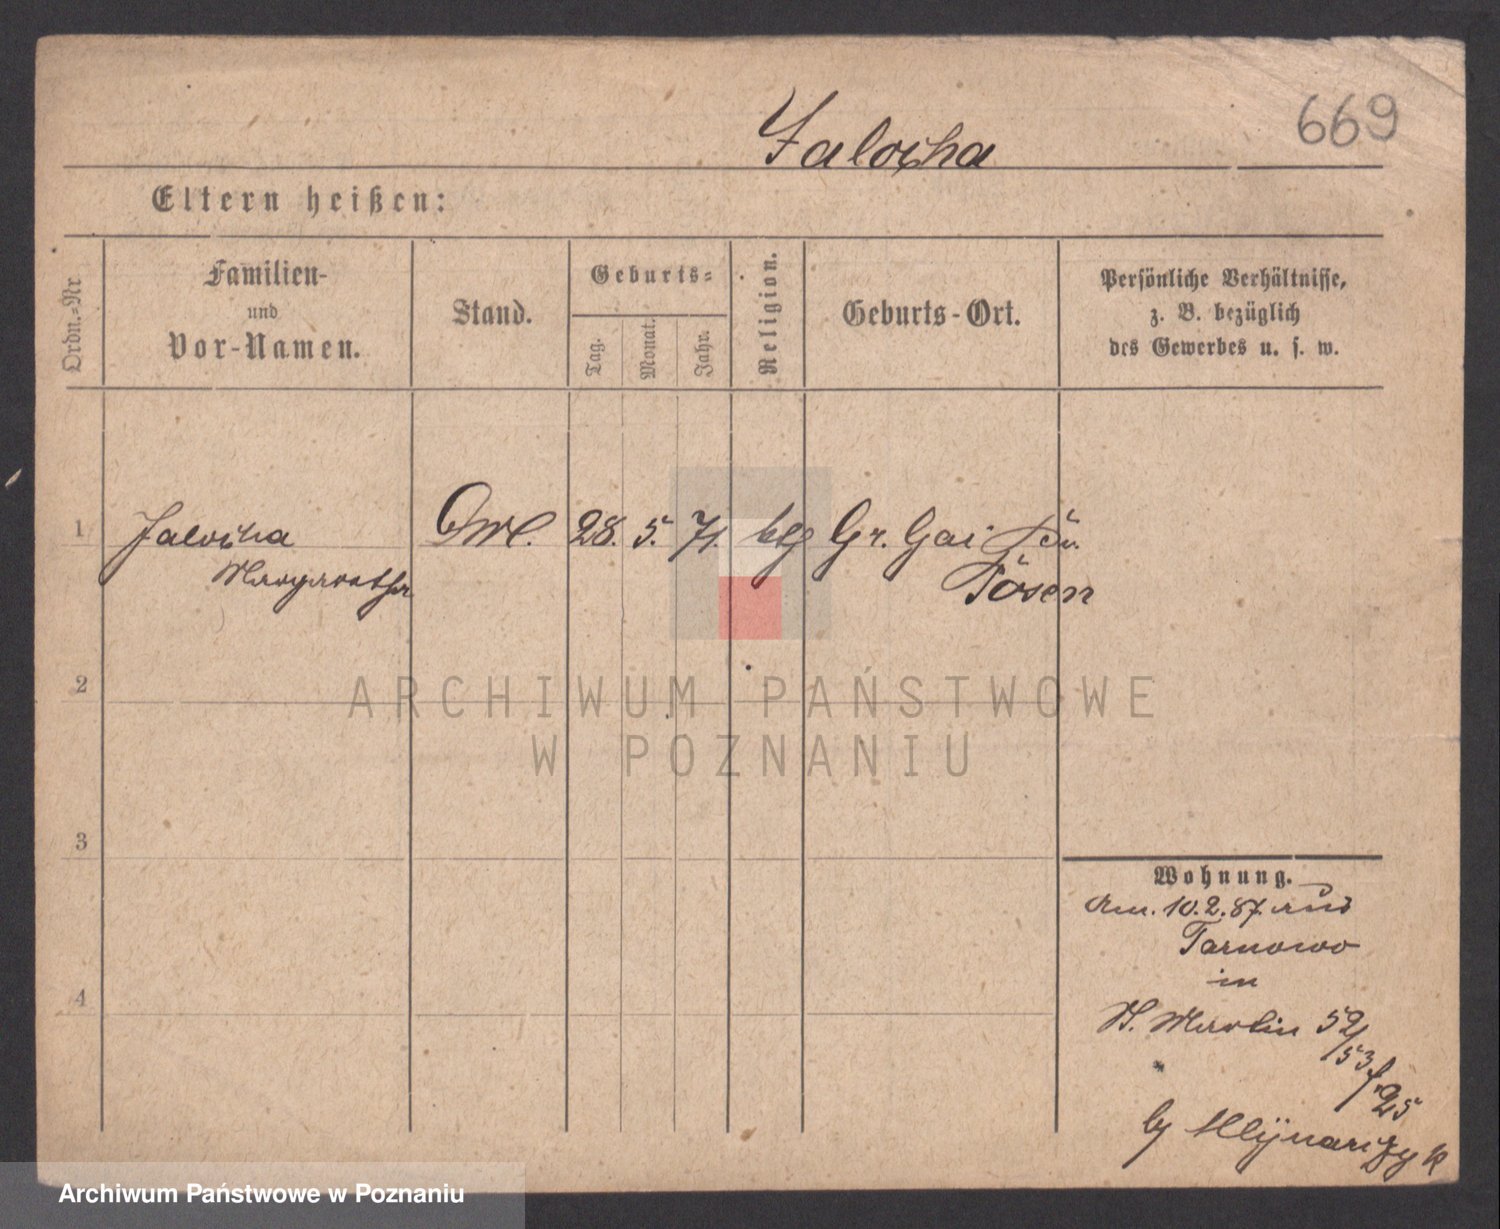 669
Jalocha
Eltern heißen:
Ordn.-Nr
Familien-
und
Vor-Namen.
Stand.
Geburts-
Tag.
Monat.
Jahr.
Religion.
Geburts-Ort.
Persönliche Verhältnisse,
z. B. bezüglich
des Gewerbes u. s. w.
1
Jalocha
Margaretha
28. 5. 71.
Gr. Gai
Posen
2
3
4
Wohnung.
Am. 10.2.87. aus
Tarnowo
in
St. Martin 52/53
by Mlÿnarczyk
ARCHIWUM PAŃSTWOWE
W POZNANIU
Archiwum Państwowe w Poznaniu